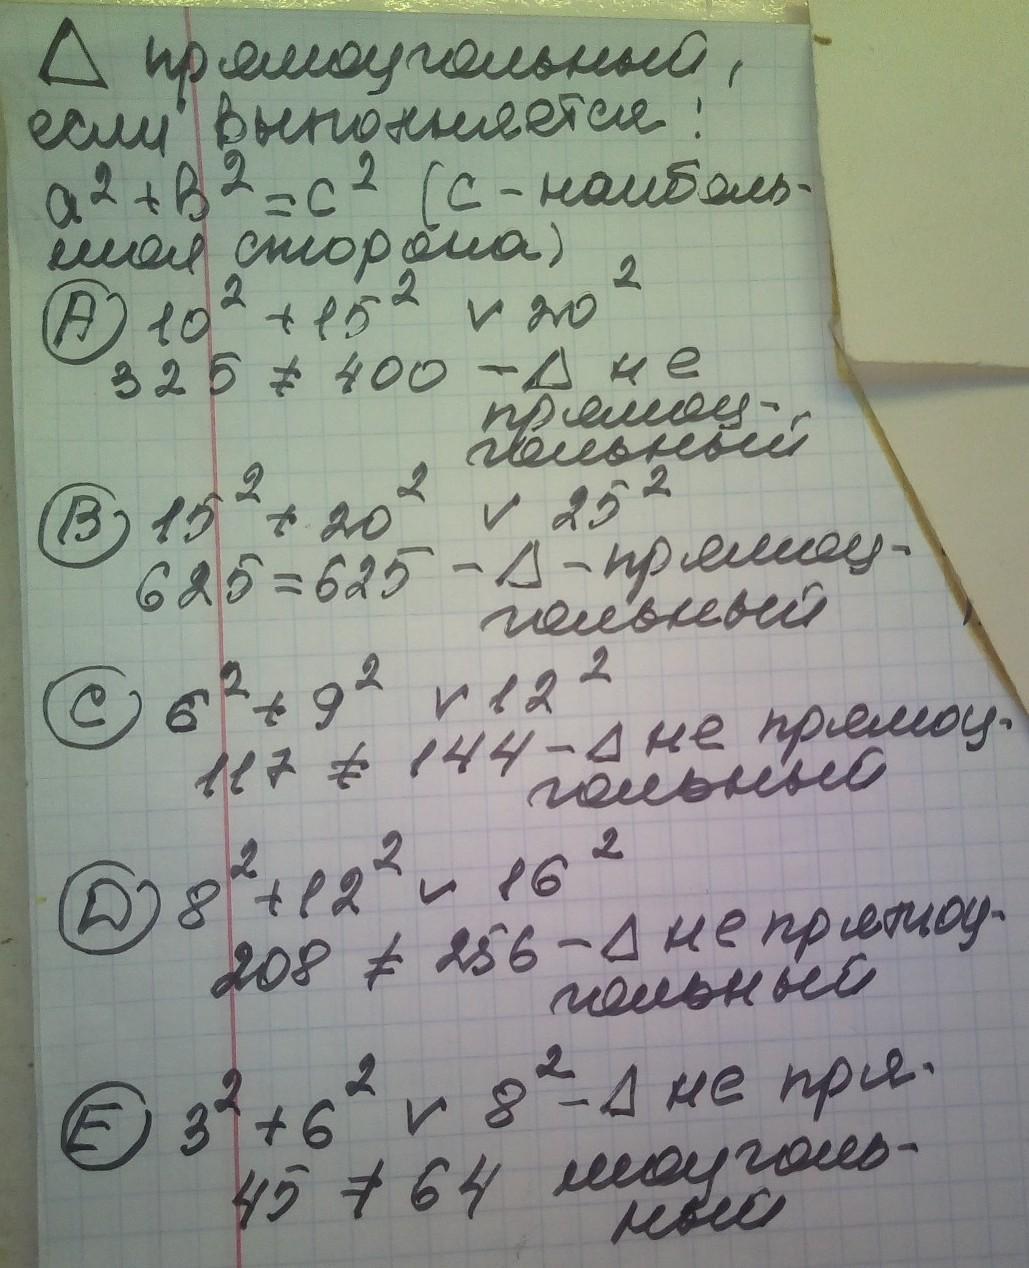 Δ прямоугольный,
если выполняется:
a² + b² = c² (c - наиболь-
шая сторона)
(A) 10² + 15² ∨ 20²
325 ≠ 400 - Δ не
прямоу-
гольный
(B) 15² + 20² ∨ 25²
625 = 625 - Δ - прямоу-
гольный
(C) 6² + 9² ∨ 12²
117 ≠ 144 - Δ не прямоу-
гольный
(D) 8² + 12² ∨ 16²
208 ≠ 256 - Δ не прямоу-
гольный
(E) 3² + 6² ∨ 8² - Δ не пря-
45 ≠ 64 моуголь-
ный